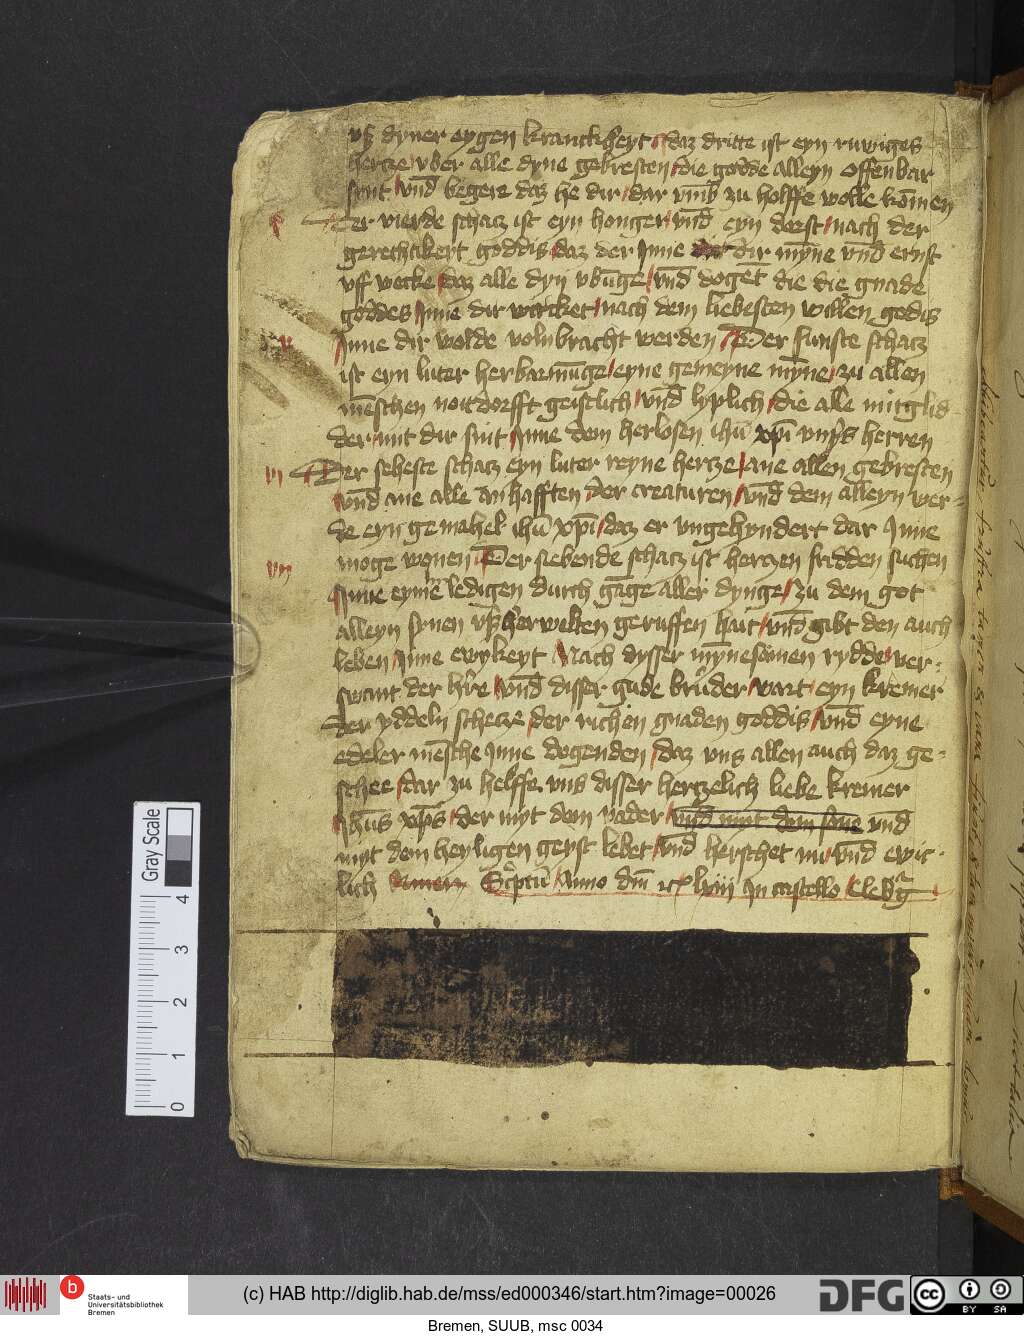 vß dyner eygen kranckheyt / daz dritte ist eyn ruwiges
hertze vber alle dyne gebresten / die godde alleyn offenbar
sint / vnd begere daz he dir / dar vmb zu holffe wolle komen
v Der vierde schacz ist eyn honger / vnd eyn dorst / nach der
gerechtikeyt goddis / daz der Inne dir myne vnd ernst
vff wecke / daz alle dyn vbunge / vnd doget die die gnade
goddes / Inne dir wircket / nach dem liebesten willen godis
Inne dir wolde volnbracht werden / Der funfte schacz
ist eyn luter herbarmunge / eyne gemeyne myne / zu allen
menschen noitdorfft geistlich / vnd lyplich / die alle mitglid
der mit dir sint / Inne dem herlosen ihu xpi vnsers herren
vi Der seheste schacz eyn luter reyne hertze / ane allen gebresten
vnd ane alle anhafften der creaturen / vnd dem alleyn wer-
de eyn gemahel ihu xpi / daz er vngehyndert dar Inne
vij moge wonen / Der siebende schacz ist hertzen fridden suchen
Inne eyme ledigen durch gange aller dynge / zu dem got
alleyn synen vß herwelten geruffen hait / vnd gibt den auch
leben / Inne ewykeyt / Nach dysser mynesamen rydde / ver-
swant der hre / vnd disser gude bruder / wart / eyn kremer
der yddeln schetze / der richen gnaden goddis / vnd eyne
edeler mensche Inne dogenden / daz vns allen auch daz ge-
schee / dar zu helffe vns disser hertzelich liebe kremer
Ihus xps / der myt dem vader / vnd mit dem sone vnd
myt dem heyligen geyst lebet / vnd herschet nu vnd ewic-
lich Amen Scriptu / Anno dm lxiii In castello / Cleb
Gray Scale
4
3
2
1
0
Staats- und
Universitätsbibliothek
Bremen
(c) HAB http://diglib.hab.de/mss/ed000346/start.htm?image=00026
DFG
cc
BY SA
Bremen, SUUB, msc 0034